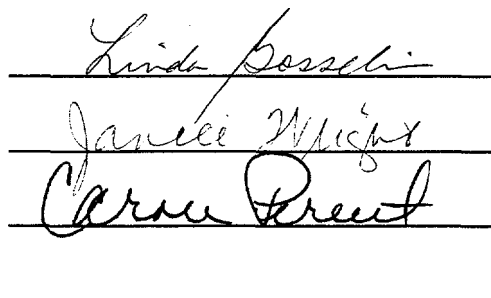 Linda Gosselin
Janice Wright
Carole Parent